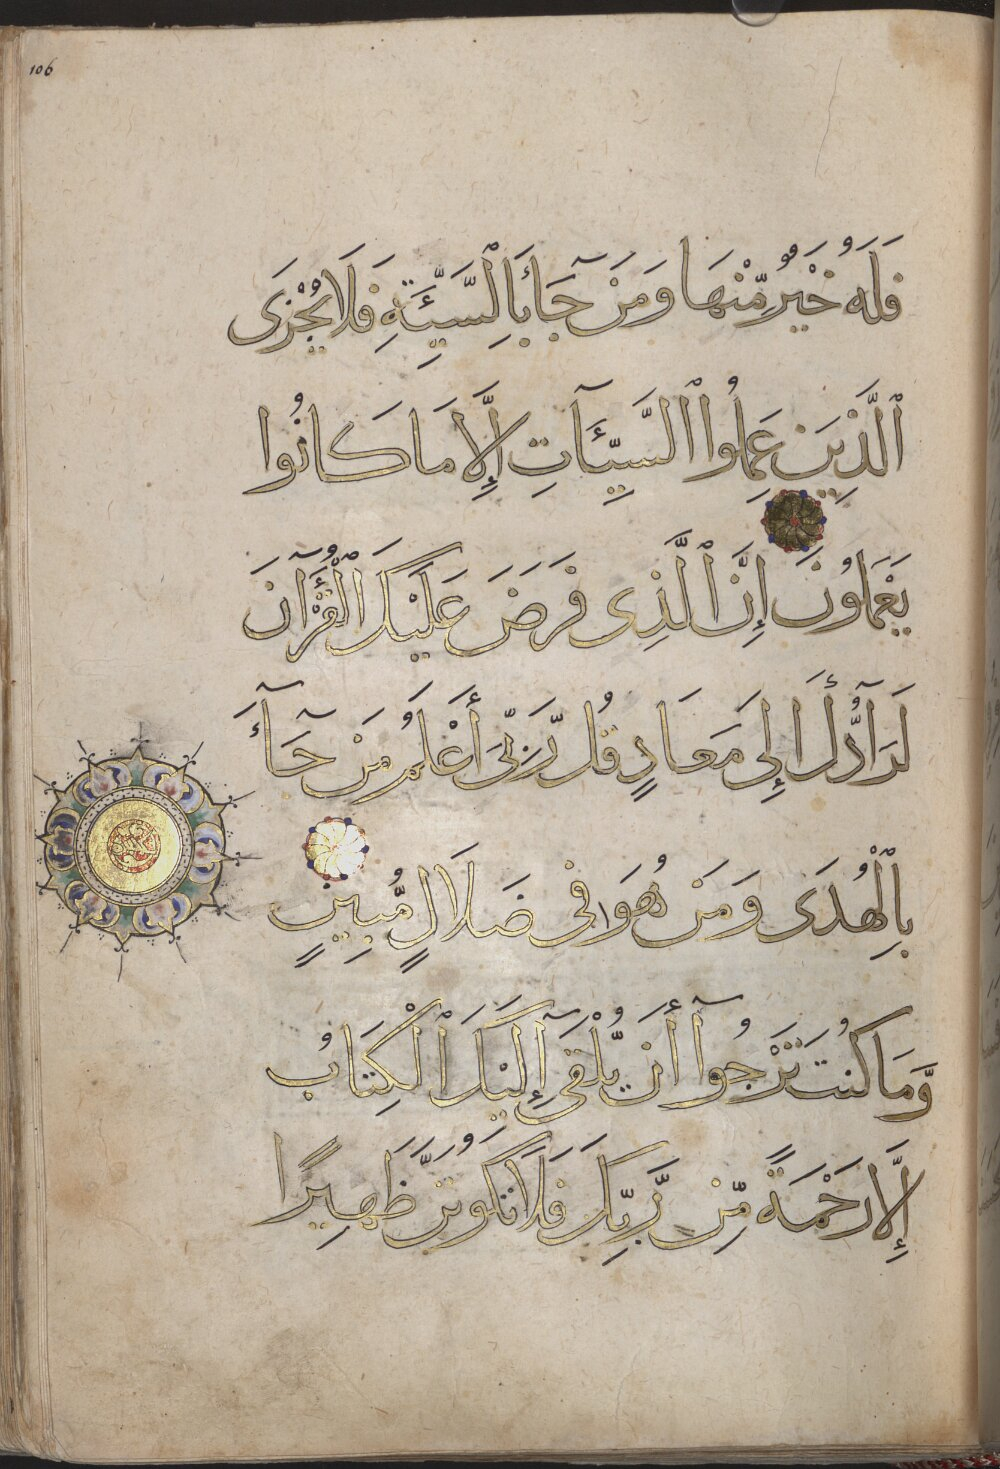 106
فَلَهُ خَيْرٌ مِّنْهَا وَمَن جَآءَ بِالسَّيِّئَةِ فَلَا يُجْزَى
الَّذِينَ عَمِلُوا السَّيِّئَاتِ إِلَّا مَا كَانُوا
يَعْمَلُونَ إِنَّ الَّذِى فَرَضَ عَلَيْكَ الْقُرْآنَ
لَرَآدُّكَ إِلَى مَعَادٍ قُل رَّبِّىٓ أَعْلَمُ مَن جَآءَ
بِالْهُدَى وَمَنْ هُوَ فِى ضَلَالٍ مُّبِينٍ
وَمَا كُنتَ تَرْجُوٓا أَن يُلْقَىٓ إِلَيْكَ الْكِتَابُ
إِلَّا رَحْمَةً مِّن رَّبِّكَ فَلَا تَكُونَنَّ ظَهِيرًا